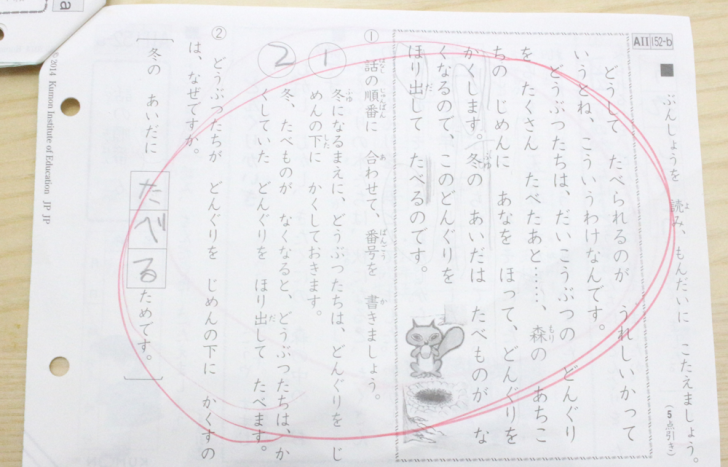 AII 152-b
■ ぶんしょうを 読み、もんだいに こたえましょう。
(5点引き)
どうして たべられるのが うれしいかって
いうとね、こういうわけなんです。
どうぶつたちは、だいこうぶつの どんぐり
を たくさん たべたあと……、森の あちこ
ちの じめんに あなを ほって、どんぐりを
かくします。冬の あいだは たべものが な
くなるので、このどんぐりを
ほり出して たべるのです。
① 話の順番に 合わせて、番号を 書きましょう。
1 冬になるまえに、どうぶつたちは、どんぐりを じ
めんの下に かくしておきます。
2 冬、たべものが なくなると、どうぶつたちは、か
くしていた どんぐりを ほり出して たべます。
② どうぶつたちが どんぐりを じめんの下に かくすの
は、なぜですか。
冬の あいだに たべる ためです。
2014 Kumon Institute of Education JP JP
a